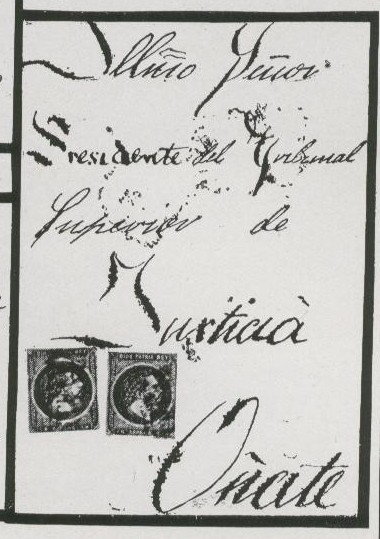 Illmo Señor
Presidente del Tribunal
Superior de
Justicia
DIOS PATRIA REY
Oñate